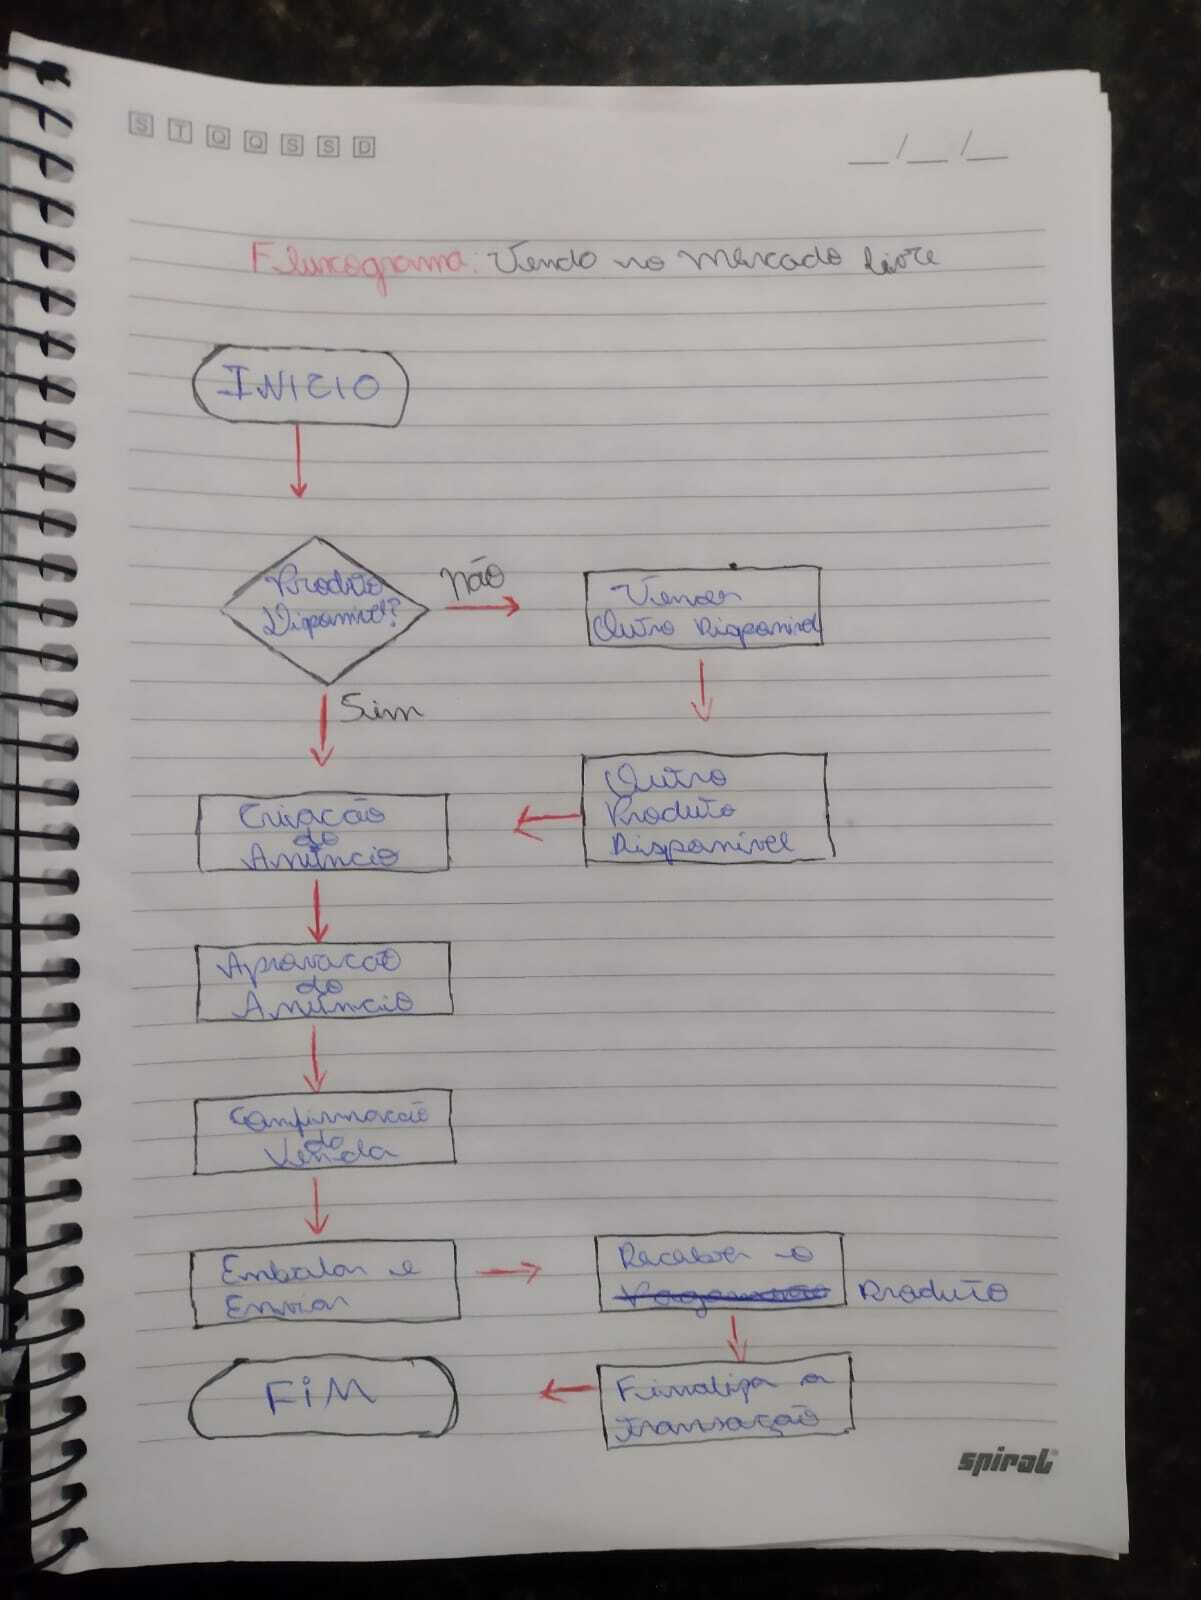 S T Q Q S S D
__/__/__
Fluxograma: Vendo no Mercado Livre
INICIO
Produto
Disponível?
Não
Vender
Outro Disponível
Sim
Outro
Produto
Disponível
Criação
do
Anúncio
Aprovação
do
Anúncio
Confirmação
da
Venda
Embalar e
Enviar
Receber o
Produto
FIM
Finaliza a
Transação
spiral